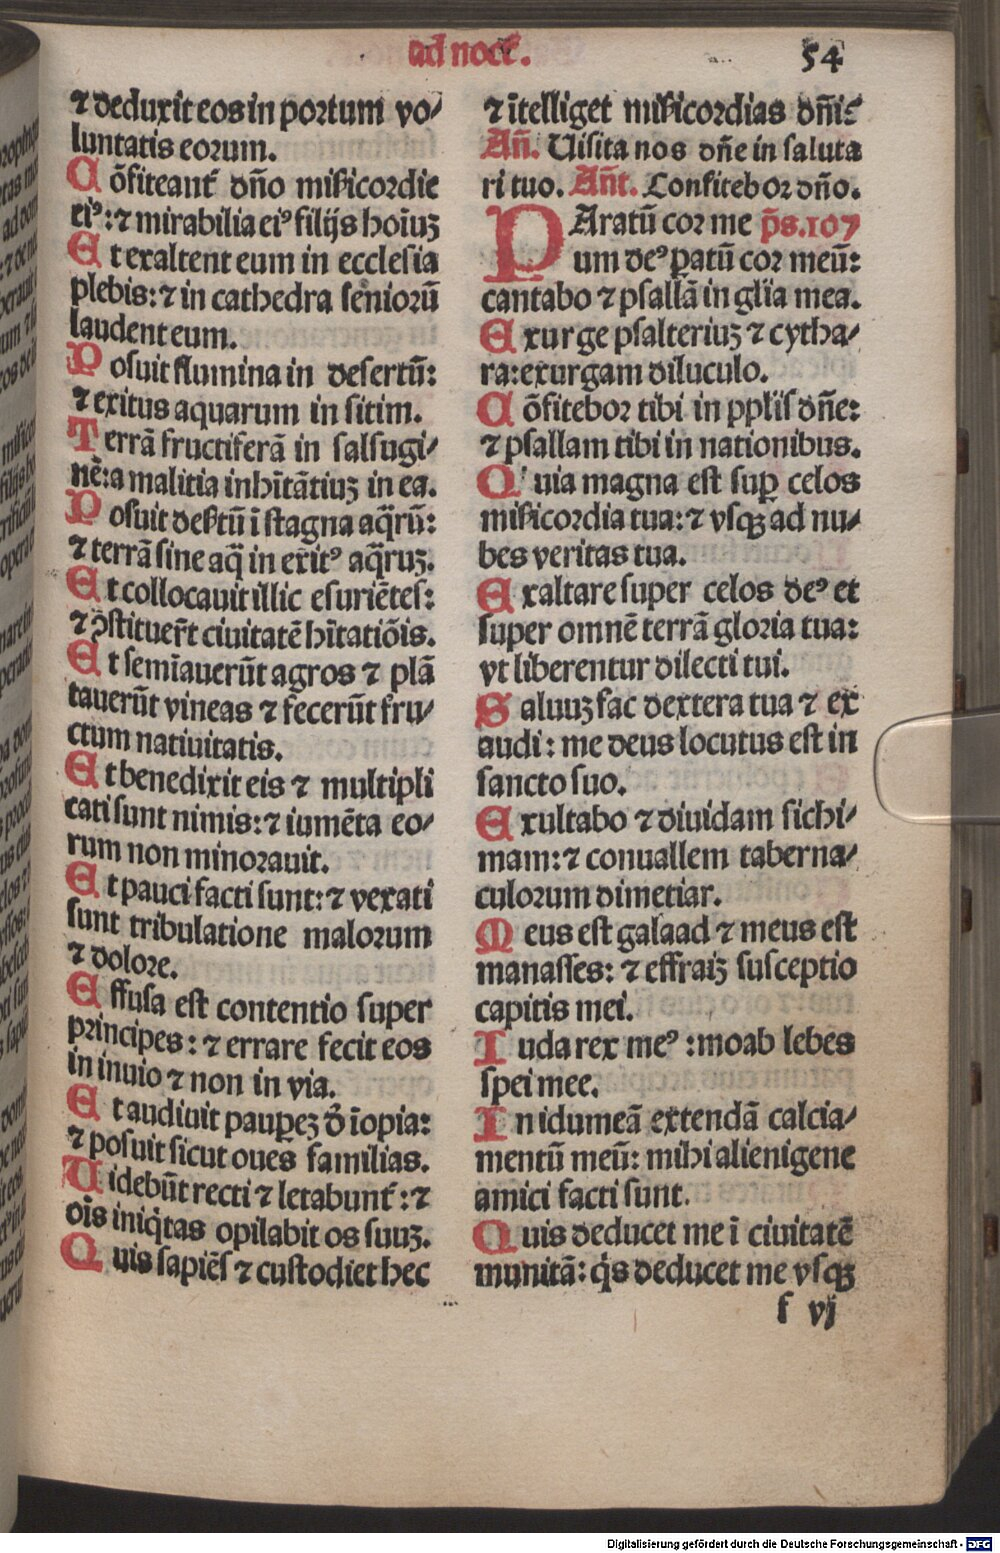 ad noct̄.
54
⁊ deduxit eos in portum vo⸗
luntatis eorum.
Cōfiteant᷑ dn̄o mi&icordie
eiꝰ: ⁊ mirabilia eiꝰ filijs hoīuꝫ
Et exaltent eum in ecclesia
plebis: ⁊ in cathedra senioꝛū
laudent eum.
Posuit flumina in desertū:
⁊ exitus aquarum in sitim.
Terrā fructiferā in salsugi⸗
nē: a malitia inhītātiuꝫ in ea.
Posuit de&tū ī stagna aq̄rū:
⁊ terrā sine aq̄ in exitꝰ aq̄ruꝫ.
Et collocauit illic esuriētes:
⁊ ꝯstituer̄t ciuitatē hītatiōis.
Et semīauerūt agros ⁊ plā
tauerūt vineas ⁊ fecerūt fru⸗
ctum natiuitatis.
Et benedixit eis ⁊ multipli
cati sunt nimis: ⁊ iumēta eo⸗
rum non minoꝛauit.
Et pauci facti sunt: ⁊ vexati
sunt tribulatione maloꝛum
⁊ doloꝛe.
Effusa est contentio super
principes: ⁊ errare fecit eos
in inuio ⁊ non in via.
Et audiuit paupeꝫ d̄ īopia:
⁊ posuit sicut oues familias.
Uidebūt recti ⁊ letabunt᷑: ⁊
oīs iniq̄tas opilabit os suuꝫ.
Quis sapiēs ⁊ custodiet hec
⁊ ītelliget mi&icoꝛdias dn̄i:
An̄. Uisita nos dn̄e in saluta
ri tuo. An̄t. Confiteboꝛ dn̄o.
PAratū coꝛ me p̄s.107
um deꝰ ꝑatū coꝛ meū:
cantabo ⁊ psallā in gl̄ia mea.
Exurge psalteriuꝫ ⁊ cytha⸗
ra: exurgam diluculo.
Cōfiteboꝛ tibi in pplīs dn̄e:
⁊ psallam tibi in nationibus.
Quia magna est suꝑ celos
mi&icoꝛdia tua: ⁊ vsqꝫ ad nu⸗
bes veritas tua.
Exaltare super celos deꝰ et
super omnē terrā gloꝛia tua:
vt liberentur dilecti tui.
Saluuꝫ fac dextera tua ⁊ ex
audi: me deus locutus est in
sancto suo.
Exultabo ⁊ diuidam sichi⸗
mam: ⁊ conuallem taberna⸗
culoꝛum dimetiar.
Meus est galaad ⁊ meus est
manasses: ⁊ effraiꝫ susceptio
capitis mei.
Iuda rex meꝰ: moab lebes
spei mee.
In idumeā extendā calcia⸗
mentū meū: mihi alienigene
amici facti sunt.
Quis deducet me ī ciuitatē
munitā: q̇s deducet me vsqꝫ
f vj
Digitalisierung gefördert durch die Deutsche Forschungsgemeinschaft - DFG